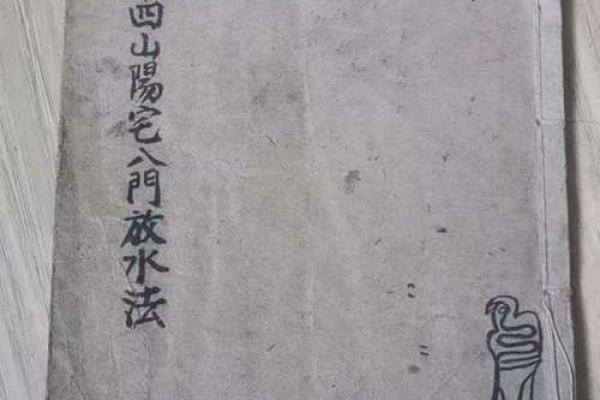 四山陽宅八門放水法